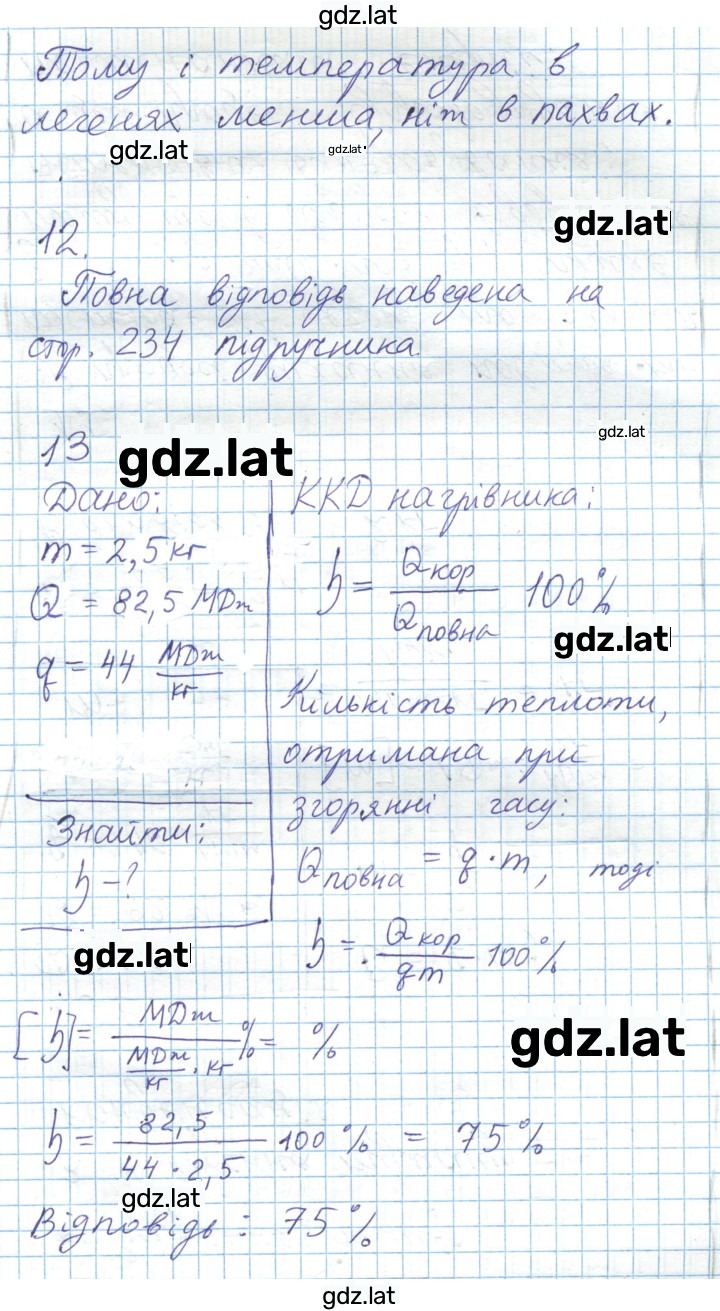 gdz.lat
Тому і температура в
легенях менша, ніж в пахвах.
gdz.lat gdz.lat
gdz.lat
12.
Повна відповідь наведена на
стор. 234 підручника.
gdz.lat
13 gdz.lat
Дано:
m = 2,5 кг
Q = 82,5 МДж
q = 44 МДж/кг
Знайти:
η – ?
ККД нагрівника:
η = Qкор / Qповна 100%
gdz.lat
Кількість теплоти,
отримана при
згорянні гасу:
Qповна = q · m, тоді
η = Qкор / qm 100%
gdz.lat
[η] = МДж / (МДж/кг · кг) % = %
gdz.lat
η = 82,5 / (44 · 2,5) 100% = 75%
gdz.lat
Відповідь: 75%
gdz.lat